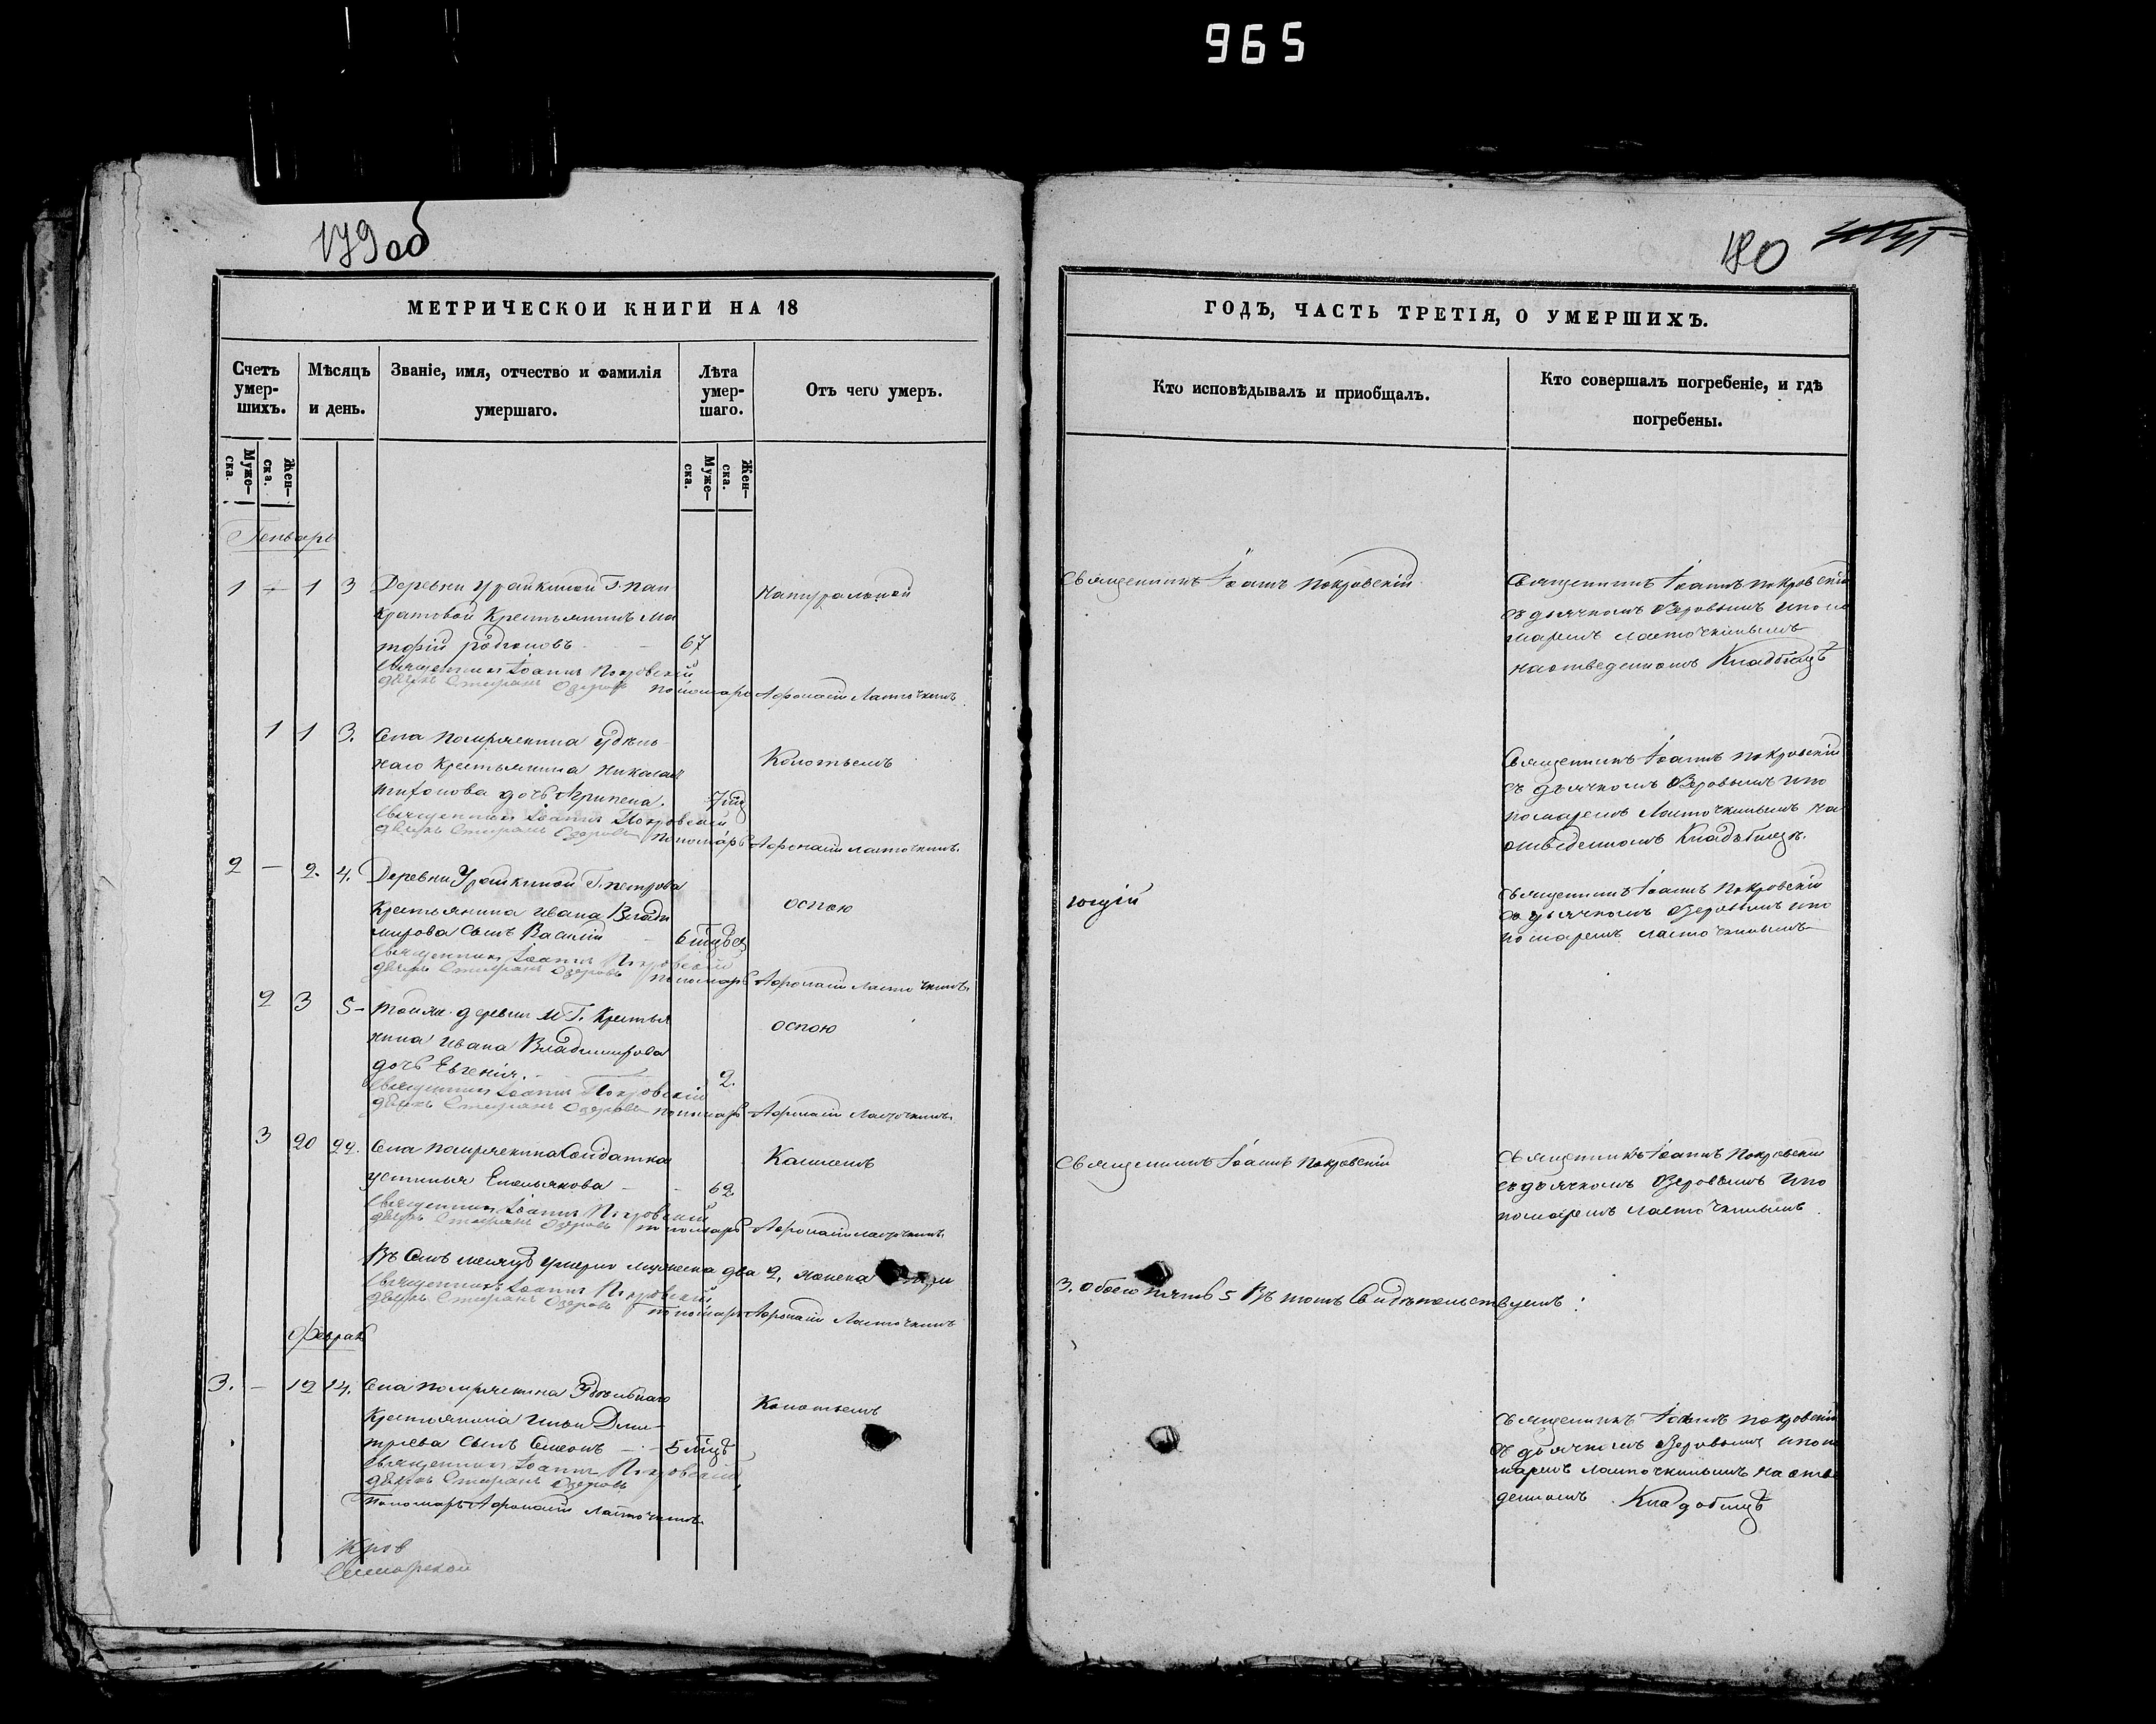 965
179 об
МЕТРИЧЕСКОЙ КНИГИ НА 18
Счетъ умер-шихъ.
Мѣсяцъ и день.
Званіе, имя, отчество и фамилія умершаго.
Лѣта умер-шаго.
Отъ чего умеръ.
Муже-ска.
Жен-ска.
Муже-ска.
Жен-ска.
Генварь
1 – 1 3 Деревни Урайкиной Г. Пан
Натуральной
кратовой Крестьянинъ Ма
тофій родіоновъ – 67
Священникъ Іоаннъ Покровскій
дьячекъ Стефанъ Озеровъ пономарь Афонасій Ласточкинъ.
1 1 3. Села Помряскина Удѣль-
наго Крестьянина Николая
Колотьемъ
тихонова дочь Агрипена.
Священникъ Іоаннъ Покровскій
дьячекъ Стефанъ Озеровъ пономарь Афонасій Ласточкинъ.
2 – 2. 4. Деревни Урайкиной Г. петрова
Крестьянина Ивана Влади
оспою
мирова сынъ Василій
Священникъ Іоаннъ Покровскій
дьячекъ Стефанъ Озеровъ пономарь Афонасій Ласточкинъ.
2 3 5 – Той же деревни и Г. Крестья
оспою
нина Ивана Владимирова
дочь Евгенія. 2.
Священникъ Іоаннъ Покровскій
дьячекъ Стефанъ Озеровъ пономарь Афонасій Ласточкинъ.
3 20 22. Села Помряскина Солдатка
Кашлемъ
устинья Емельянова – 62
Священникъ Іоаннъ Покровскій
дьячекъ Стефанъ Озеровъ пономарь Афонасій Ласточкинъ.
Въ семъ месяцѣ умерло мужеска два 2, женска три
Священникъ Іоаннъ Покровскій
дьячекъ Стефанъ Озеровъ пономарь Афонасій Ласточкинъ
Феврал
3. – 12 14. Села Помряскина Удѣльнаго
Колотьемъ
Крестьянина Ильи Дми-
трева сынъ Симеонъ – 5 мѣцъ
Священникъ Іоаннъ Покровскій
дьячекъ Стефанъ Озеровъ
Пономарь Афонасій Ласточкинъ
180
ГОДЪ, ЧАСТЬ ТРЕТІЯ, О УМЕРШИХЪ.
Кто исповѣдывалъ и пріобщалъ.
Кто совершалъ погребеніе, и гдѣ погребены.
Священникъ Іоаннъ Покровскій
Священникъ Іоаннъ покровскій
съ дьячкомъ Озеровымъ и поно
маремъ Ласточкинымъ
на отведенномъ Кладбищѣ
Священникъ Іоаннъ покровскій
съ дьячкомъ Озеровымъ и по
номаремъ Ласточкинымъ на
отведенномъ Кладбищѣ.
Священникъ Іоаннъ Покровскій
со дьячкомъ Озеровымъ и по
номаремъ Ласточкинымъ
Священникъ Іоаннъ Покровскій
Священникъ Іоаннъ Покровскій
съ дьячкомъ Озеровымъ и по
номаремъ Ласточкинымъ.
3. обоего пять 5 Въ томъ Свидѣтельствуемъ:
Священникъ Іоаннъ покровскій
съ дьячкомъ Озеровымъ и поно
маремъ Ласточкинымъ на отве
денномъ Кладбищѣ